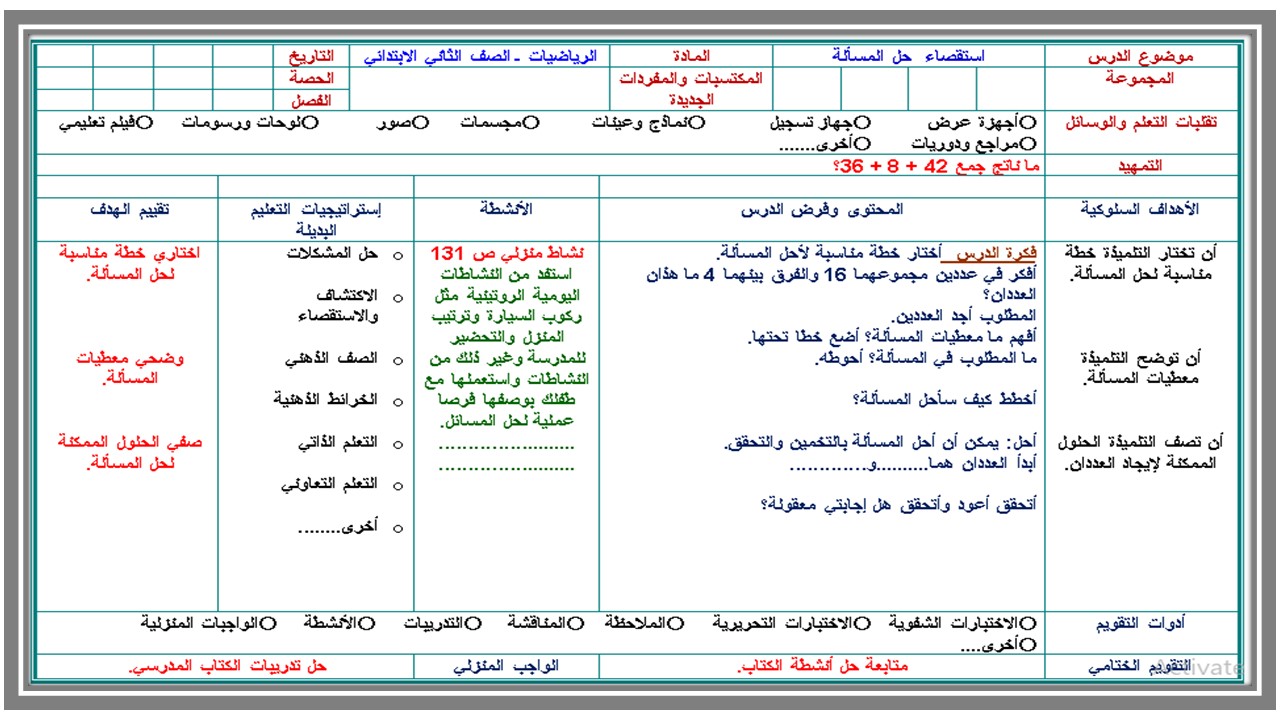 موضوع الدرس
استقصاء حل المسألة
المادة
الرياضيات - الصف الثاني الابتدائي
التاريخ
المجموعة
المكتسبات والمفردات
الجديدة
الحصة
الفصل
تقلبات التعلم والوسائل
Oأجهزة عرض Oجهاز تسجيل Oنماذج وعينات Oمجسمات Oصور Oلوحات ورسومات Oفيلم تعليمي
Oمراجع ودوريات Oأخرى.......
التمهيد
ما ناتج جمع 42 + 8 + 36؟
الأهداف السلوكية
المحتوى وفرض الدرس
الأنشطة
إستراتيجيات التعليم
البديلة
تقييم الهدف
أن تختار التلميذة خطة
مناسبة لحل المسألة.
أن توضح التلميذة
معطيات المسألة.
أن تصف التلميذة الحلول
الممكنة لإيجاد العددان.
فكرة الدرس أختار خطة مناسبة لأحل المسألة.
أفكر في عددين مجموعهما 16 والفرق بينهما 4 ما هذان
العددان؟
المطلوب أجد العددين.
أفهم ما معطيات المسألة؟ أضع خطا تحتها.
ما المطلوب في المسألة؟ أحوطه.
أخطط كيف سأحل المسألة؟
أحل: يمكن أن أحل المسألة بالتخمين والتحقق.
أبدأ العددان هما..........و.............
أتحقق أعود وأتحقق هل إجابتي معقولة؟
نشاط منزلي ص 131
استفد من النشاطات
اليومية الروتينية مثل
ركوب السيارة وترتيب
المنزل والتحضير
للمدرسة وغير ذلك من
النشاطات واستعملها مع
طفلك بوصفها فرصا
عملية لحل المسائل.
........................
........................
o حل المشكلات
o الاكتشاف
والاستقصاء
o الصف الذهني
o الخرائط الذهنية
o التعلم الذاتي
o التعلم التعاوني
o أخرى........
اختاري خطة مناسبة
لحل المسألة.
وضحي معطيات
المسألة.
صفي الحلول الممكنة
لحل المسألة.
أدوات التقويم
Oالاختبارات الشفوية Oالاختبارات التحريرية Oالملاحظة Oالمناقشة Oالتدريبات Oالأنشطة Oالواجبات المنزلية
Oأخرى....
التقويم الختامي
متابعة حل أنشطة الكتاب.
الواجب المنزلي
حل تدريبات الكتاب المدرسي.
Activate